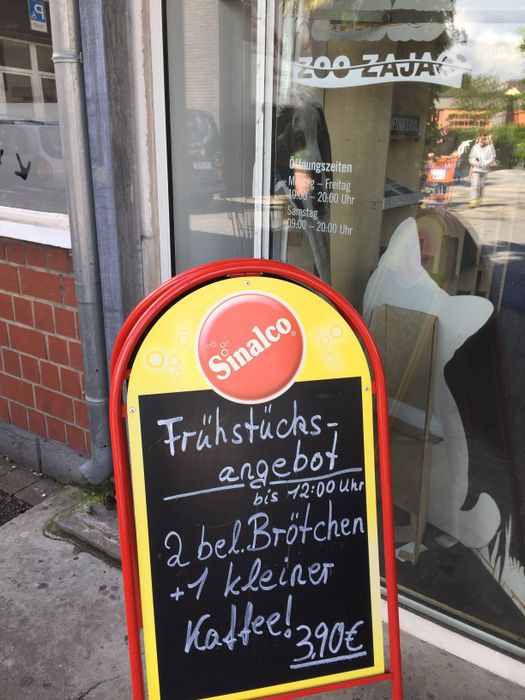 P
ZOO ZAJAC
Öffnungszeiten
Montag – Freitag
10:00 – 20:00 Uhr
Samstag
09:00 – 20:00 Uhr
Sinalco
Frühstücks-
angebot
bis 12:00 Uhr
2 bel. Brötchen
+ 1 kleiner
Kaffee!
3,90€